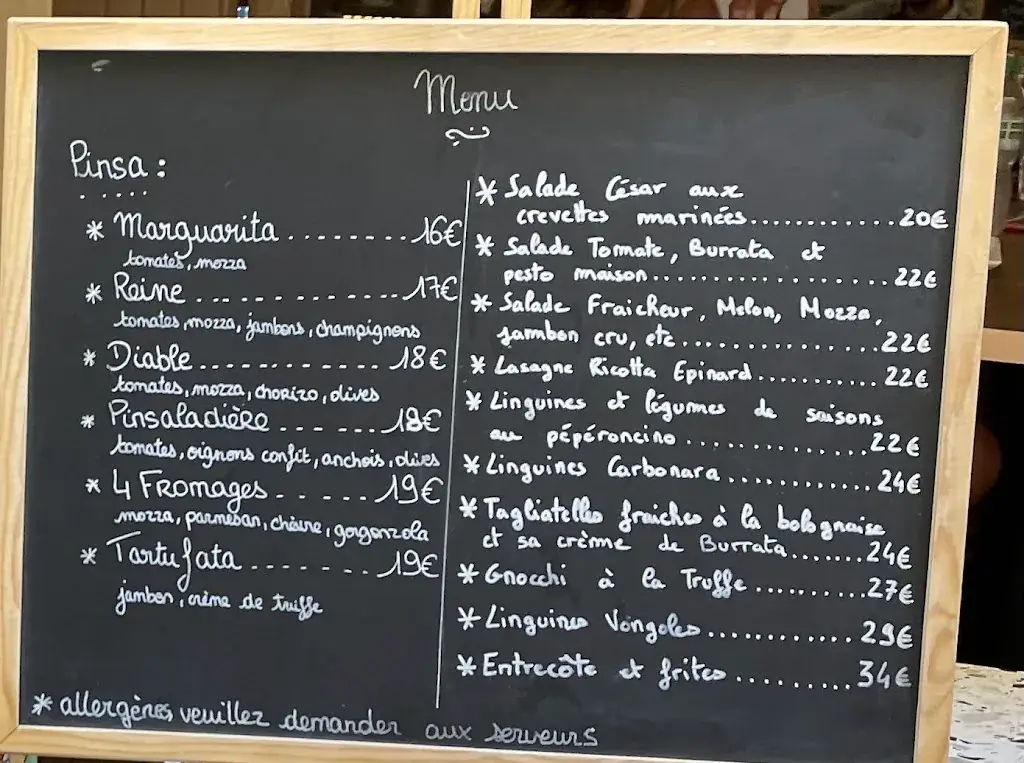 Menu
Pinsa :
* Marguarita ........ 16€
tomates, mozza
* Reine ............ 17€
tomates, mozza, jambons, champignons
* Diable ............ 18€
tomates, mozza, chorizo, olives
* Pinsaladière ...... 18€
tomates, oignons confit, anchois, olives
* 4 Fromages ...... 19€
mozza, parmesan, chèvre, gorgonzola
* Tartufata ....... 19€
jambon, crème de truffe
* Salade César aux
crevettes marinées............20€
* Salade Tomate, Burrata et
pesto maison....................22€
* Salade Fraicheur, Melon, Mozza,
jambon cru, etc................22€
* Lasagne Ricotta Epinard...........22€
* Linguines et légumes de saisons
au pépéroncino ...............22€
* Linguines Carbonara............24€
* Tagliatelles fraiches à la bolognaise
et sa crème de Burrata.......24€
* Gnocchi à la Truffe..........27€
* Linguines Vongoles............29€
* Entrecôte et frites..........34€
* allergènes veuillez demander aux serveurs